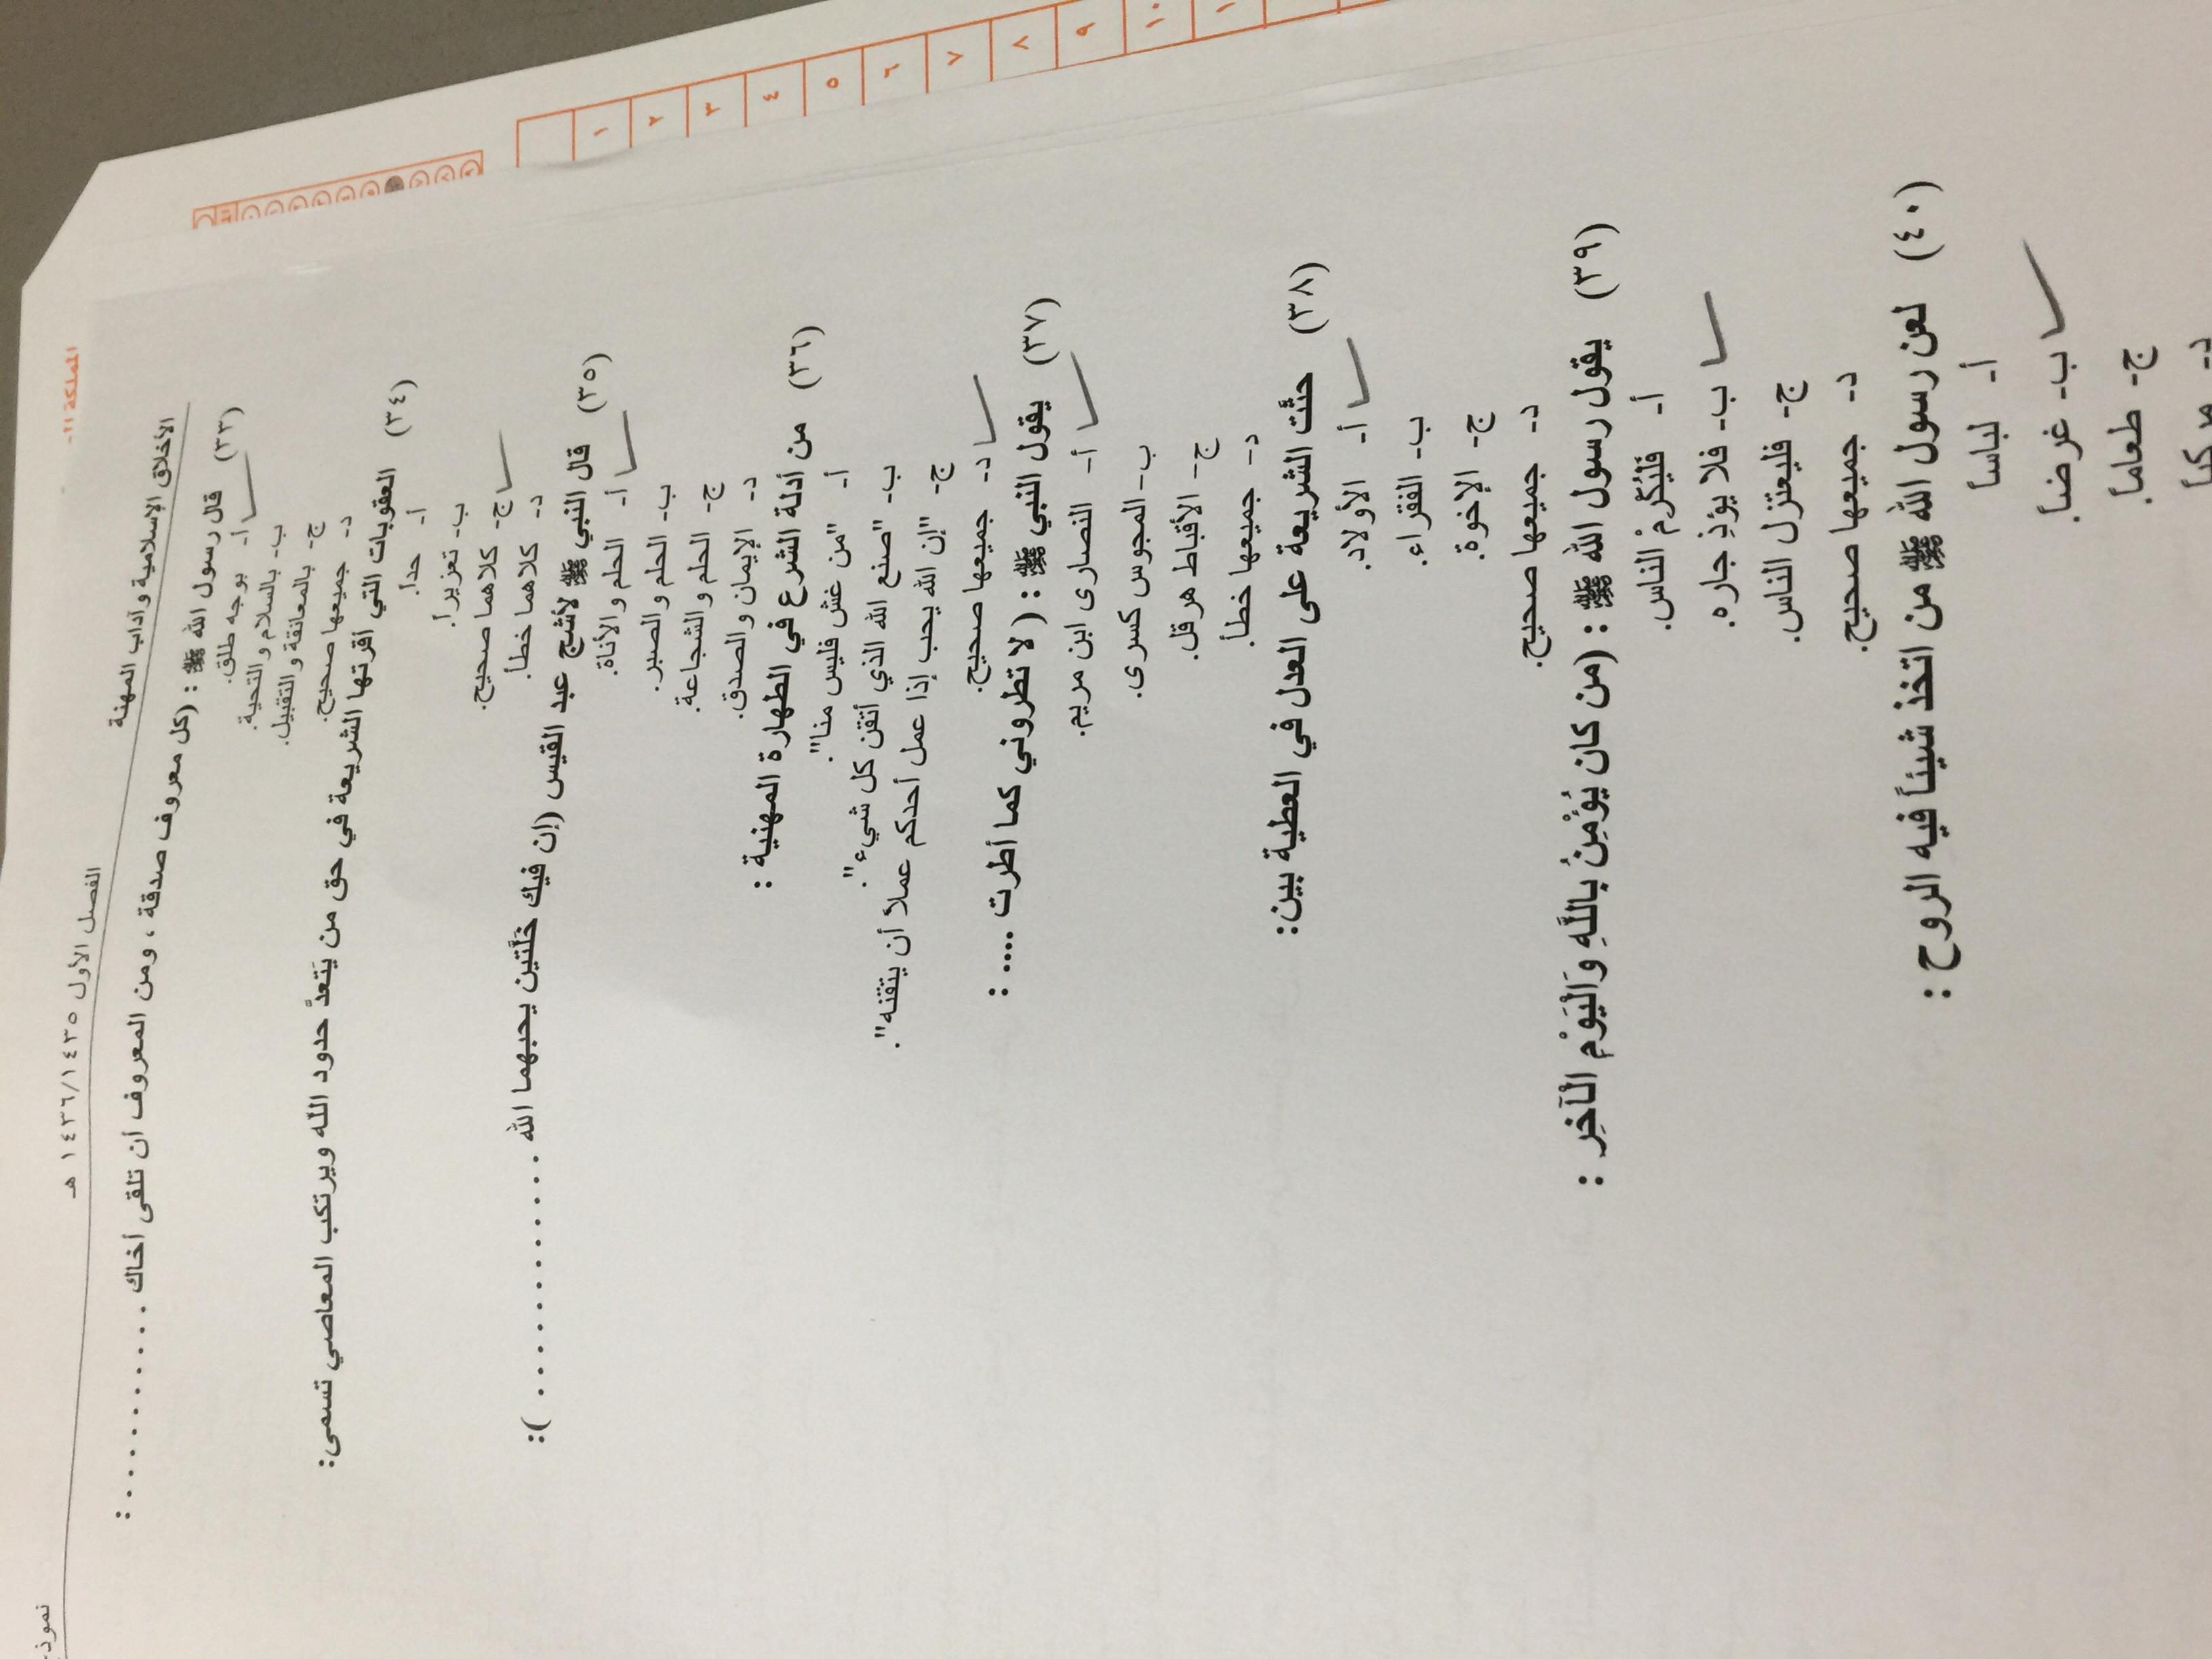 المملكة ال
نموذج
الفصل الأول ١٤٣٦/١٤٣٥ هـ
الأخلاق الإسلامية وآداب المهنة
(٣٣) قال رسول الله ﷺ : (كل معروف صدقة ، ومن المعروف أن تلقى أخاك ............ :
أ- بوجه طلق.
ب- بالسلام والتحية.
ج- بالمعانقة والتقبيل.
د- جميعها صحيح.
(٣٤) العقوبات التي أقرتها الشريعة في حق من يَتعدَّ حدود الله ويرتكب المعاصي تسمى:
أ- حداً.
ب- تعزيراً.
ج- كلاهما صحيح.
د- كلاهما خطأ.
(٣٥) قال النبي ﷺ لأشج عبد القيس (إن فيك خَلَّتين يحبهما الله ............. ):
أ- الحلم والأناة.
ب- الحلم والصبر.
ج- الحلم والشجاعة.
د- الإيمان والصدق.
(٣٦) من أدلة الشرع في الطهارة المهنية :
أ- "من غش فليس منا".
ب- "صنع الله الذي أتقن كل شيء".
ج- "إن الله يحب إذا عمل أحدكم عملاً أن يتقنه".
د- جميعها صحيح.
(٣٧) يقول النبي ﷺ : ( لا تطروني كما أطرت .... :
أ- النصارى ابن مريم.
ب- المجوس كسرى.
ج- الأقباط هرقل.
د- جميعها خطأ.
(٣٨) حثَّت الشريعة على العدل في العطية بين:
أ- الأولاد.
ب- الفقراء.
ج- الإخوة.
د- جميعها صحيح.
(٣٩) يقول رسول الله ﷺ : (من كان يُؤْمِنُ بِاللَّهِ وَالْيَوْمِ الْآخِرِ :
أ- فَلْيُكْرِمْ الناس.
ب- فلا يؤذِ جاره.
ج- فليعتزل الناس.
د- جميعها صحيح.
(٤٠) لعن رسول الله ﷺ من اتخذ شيئاً فيه الروح :
أ- لباساً
ب- غرضاً.
ج- طعاماً.
د- مركباً
١
٢
٣
٤
٥
٦
٧
٨
٩
١٠